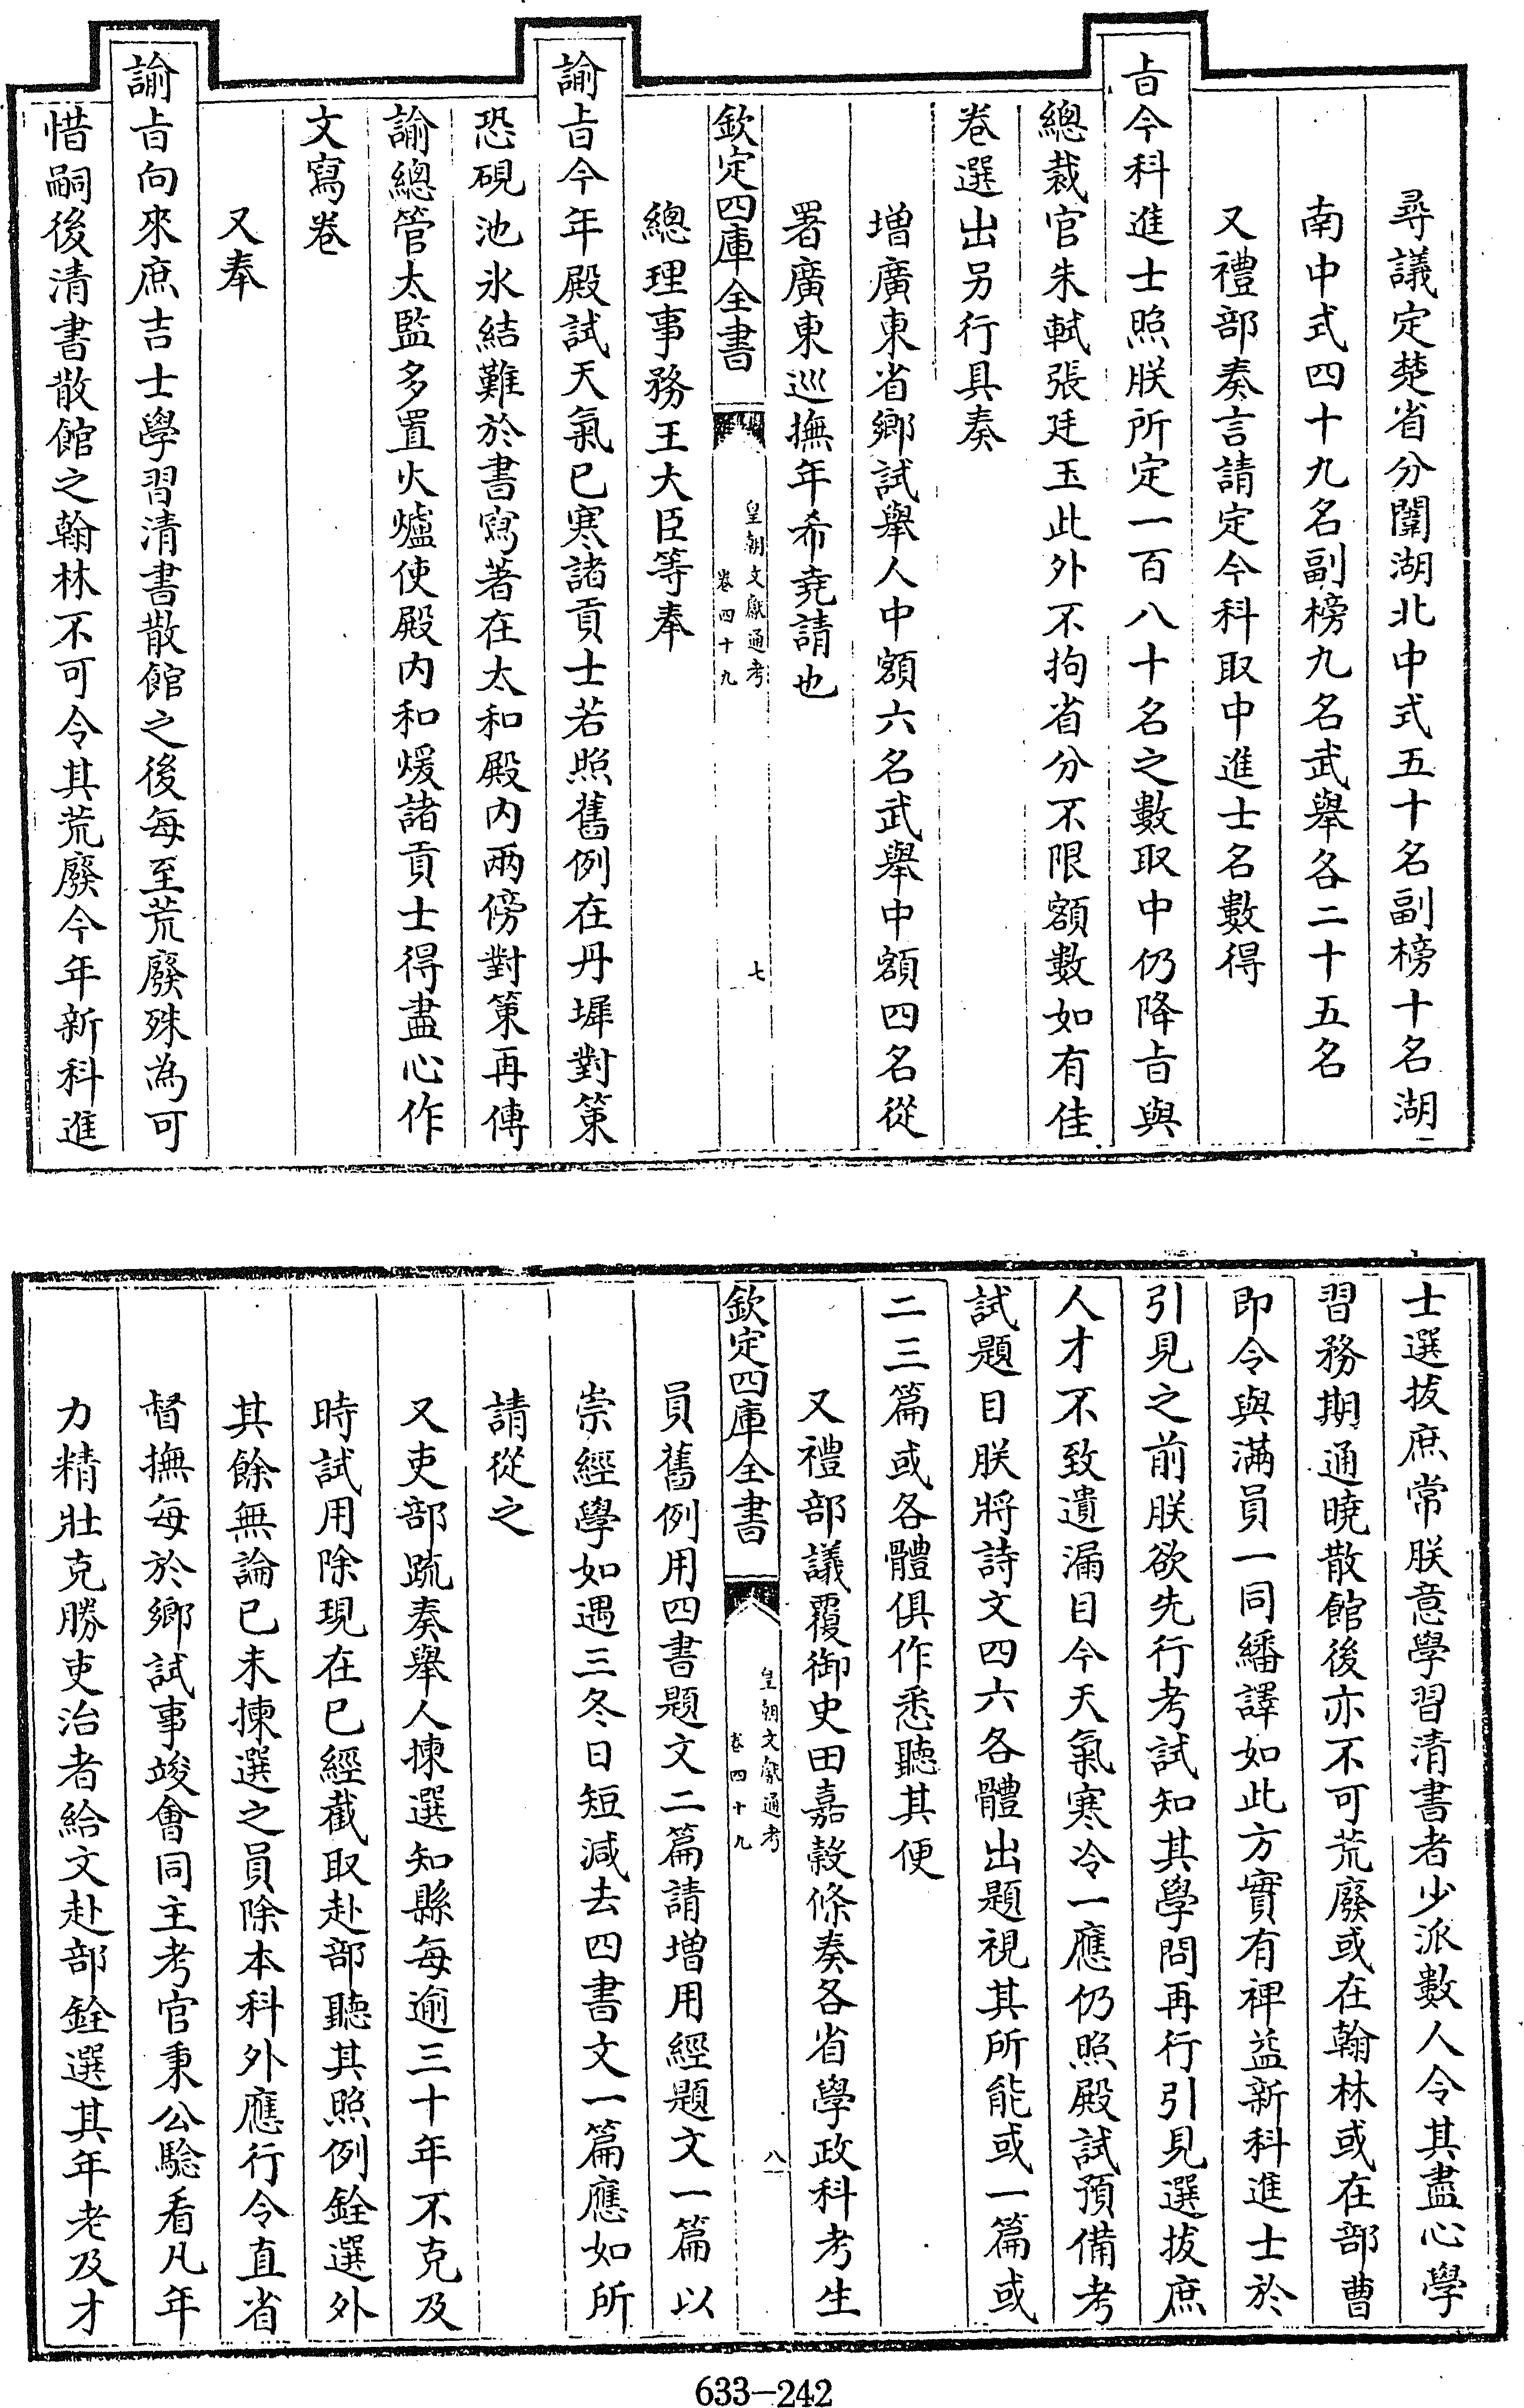 尋議定楚省分闈湖北中式五十名副榜十名湖
南中式四十九名副榜九名武舉各二十五名
又禮部奏言請定今科取中進士名數得
旨今科進士照朕所定一百八十名之數取中仍降旨與
總裁官朱軾張廷玉此外不拘省分不限額數如有佳
卷選出另行具奏
增廣東省鄉試舉人中額六名武舉中額四名從
署廣東巡撫年希堯請也
欽定四庫全書
皇朝文獻通考
卷四十九
七
總理事務王大臣等奉
諭旨今年殿試天氣已寒諸貢士若照舊例在丹墀對策
恐硯池氷結難於書寫著在太和殿内兩傍對策再傳
諭總管太監多置火爐使殿内和煖諸貢士得盡心作
文寫卷
又奉
諭旨向來庶吉士學習清書散館之後每至荒廢殊為可
惜嗣後清書散館之翰林不可令其荒廢今年新科進
士選拔庶常朕意學習清書者少派數人令其盡心學
習務期通曉散館後亦不可荒廢或在翰林或在部曹
即令與滿員一同繙譯如此方實有裨益新科進士於
引見之前朕欲先行考試知其學問再行引見選拔庶
人才不致遺漏目今天氣寒冷一應仍照殿試預備考
試題目朕將詩文四六各體出題視其所能或一篇或
二三篇或各體俱作悉聽其便
又禮部議覆御史田嘉穀條奏各省學政科考生
欽定四庫全書
皇朝文獻通考
卷四十九
八
員舊例用四書題文二篇請增用經題文一篇以
崇經學如遇三冬日短減去四書文一篇應如所
請從之
又吏部疏奏舉人揀選知縣每逾三十年不克及
時試用除現在已經截取赴部聽其照例銓選外
其餘無論已未揀選之員除本科外應行令直省
督撫每於鄉試事竣會同主考官秉公驗看凡年
力精壯克勝吏治者給文赴部銓選其年老及才
633-242